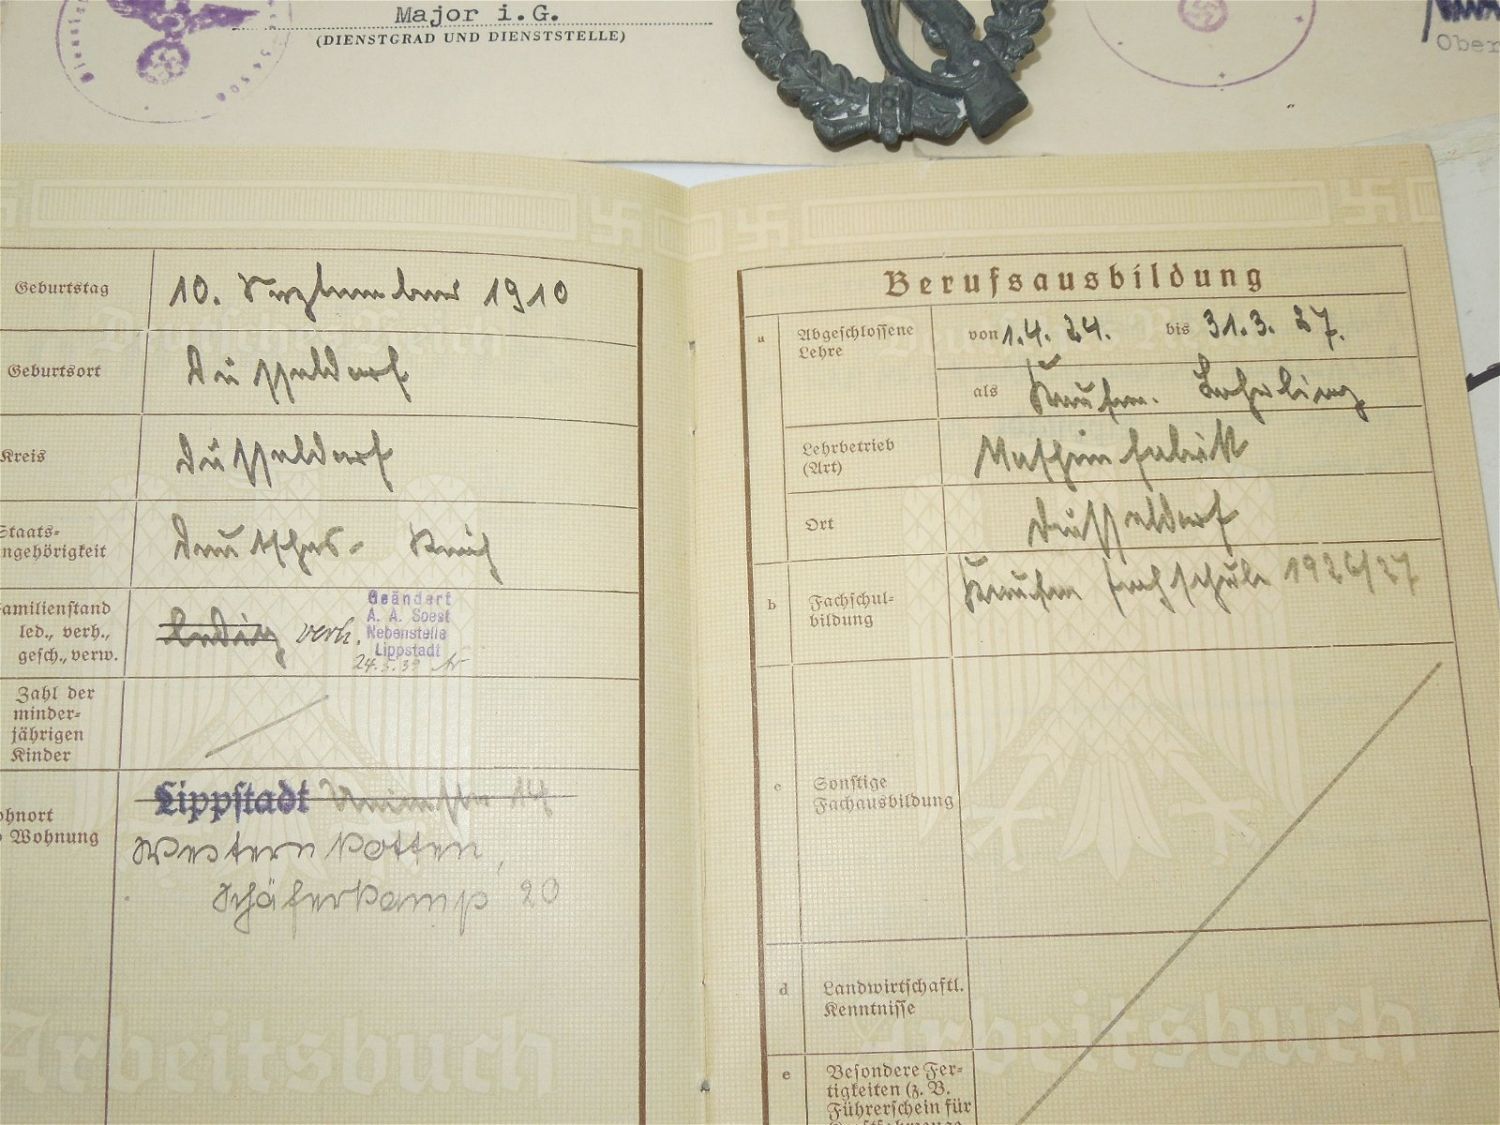 Major i.G.
(DIENSTGRAD UND DIENSTSTELLE)
Ober
Geburtstag
10. September 1910
Geburtsort
Düsseldorf
Kreis
Düsseldorf
Staats-
angehörigkeit
Deutsches-Reich
Familienstand
led., verh.,
gesch., verw.
ledig verh.
Geändert
A. A. Soest
Nebenstelle
Lippstadt
24.5.39
Zahl der
minder-
jährigen
Kinder
ohnort
Wohnung
Lippstadt 14
Westernkotten,
Schäferkamp 20
Arbeitsbuch
Berufsausbildung
a
Abgeschlossene
Lehre
von 1.4.24. bis 31.3.27.
als Kaufm. Lehrling
Lehrbetrieb
(Art)
Maschinenfabrik
Ort
Düsseldorf
b
Fachschul-
bildung
Kaufm Fachschule 1926/27
c
Sonstige
Fachausbildung
d
Landwirtschaftl.
Kenntnisse
Arbeitsbuch
e
Besondere Fer-
tigkeiten (z. B.
Führerschein für